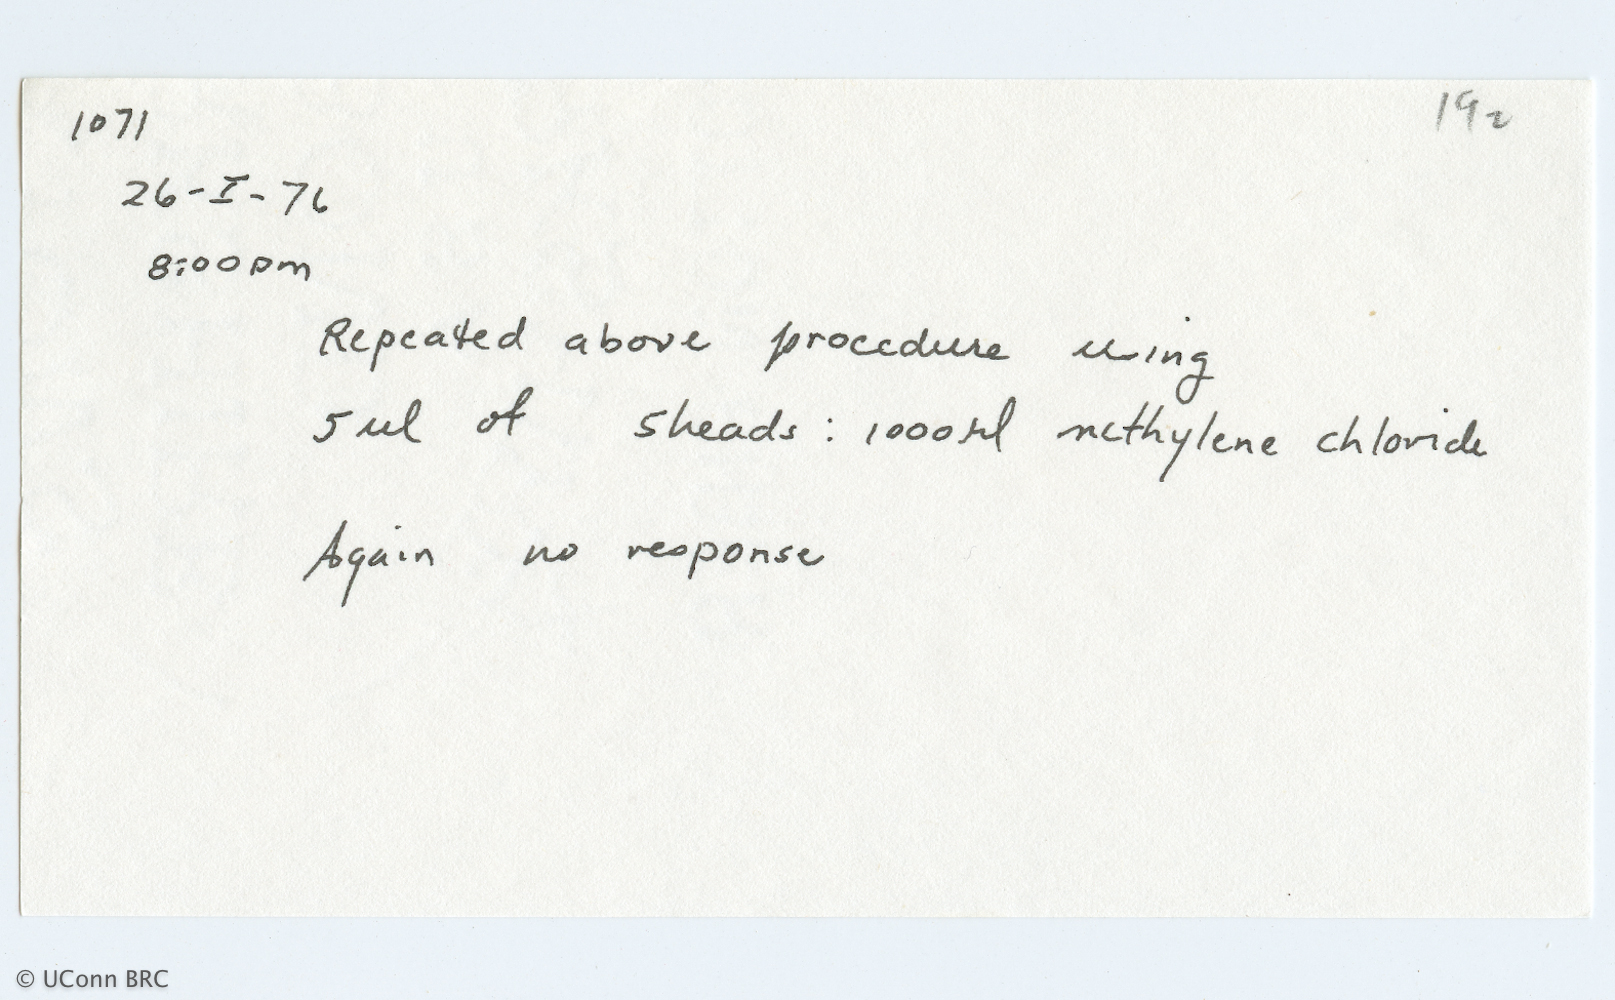 1071
192
26-I-76
8:00pm
Repeated above procedure using
5 ul of 5heads : 1000 μl methylene chloride
Again no response
© UConn BRC